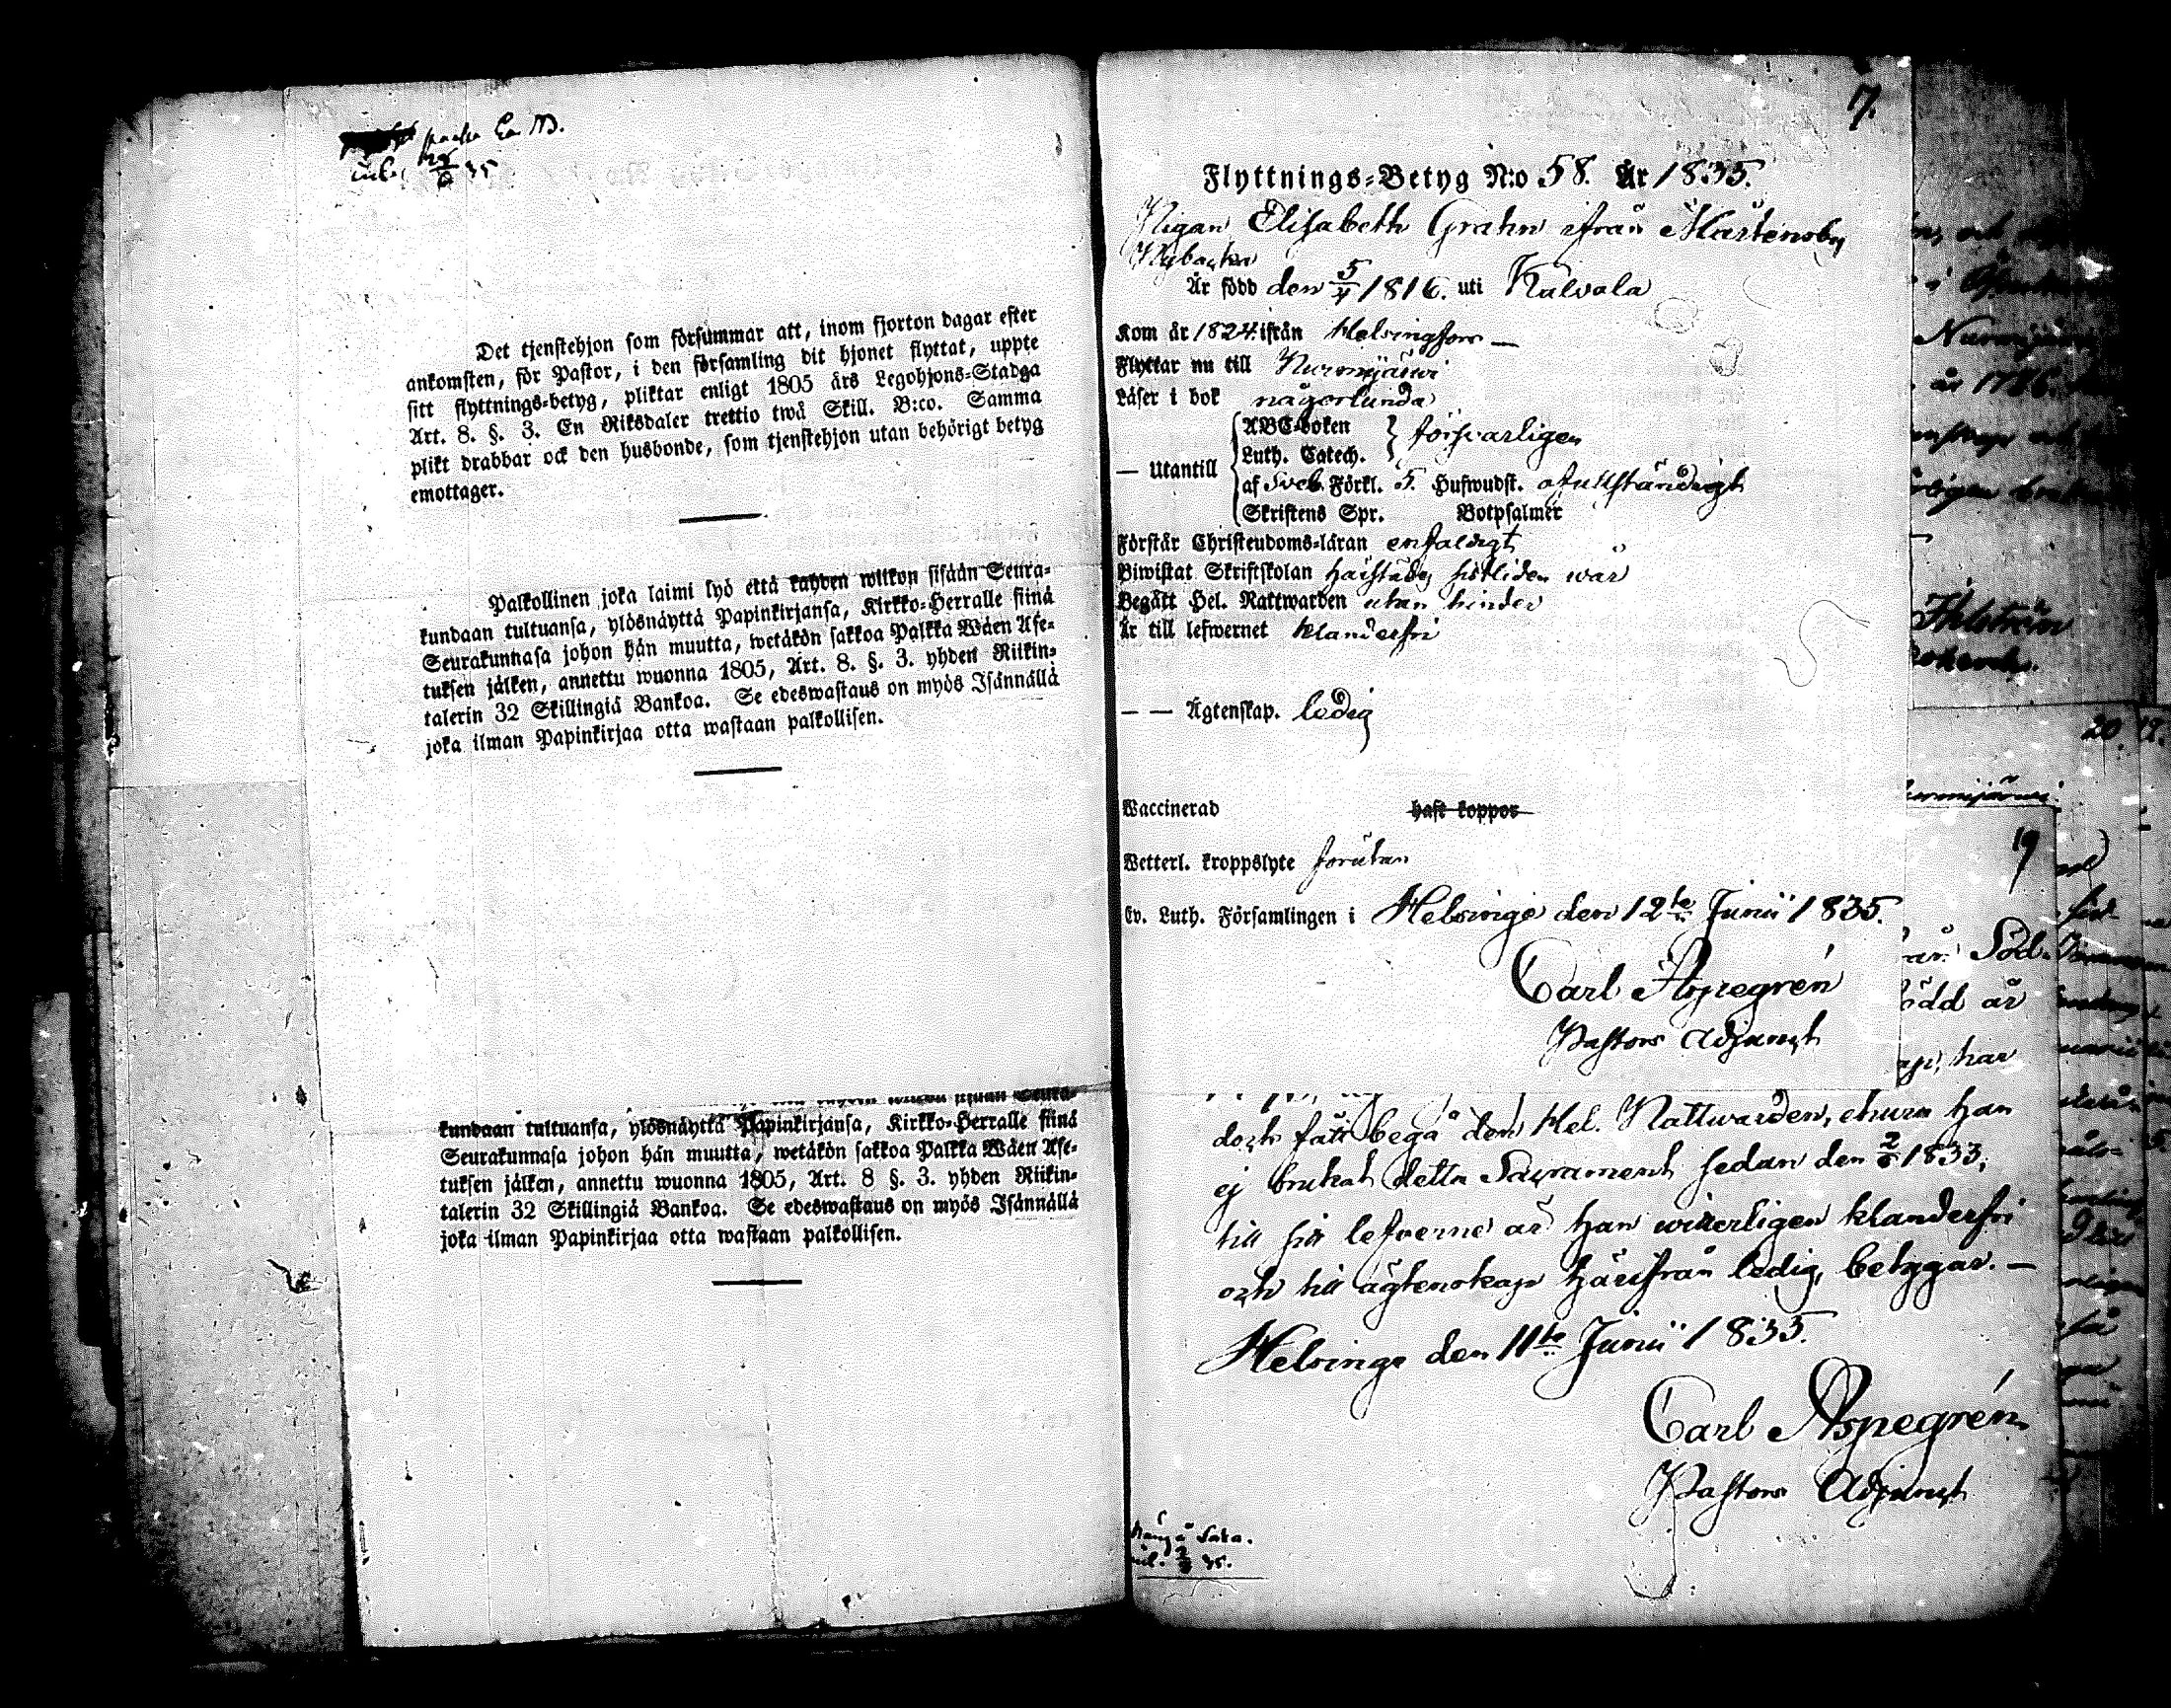 Det tjenstehjon som försummar att, inom fjorton dagar efter
ankomsten, för Pastor, i den församling dit hjonet flyttat, uppte
sitt flyttnings-betyg, pliktar enligt 1805 års Legohjons-Stadga
Art. 8. §. 3. En Riksdaler trettio twå Skill. B:co. Samma
plikt drabbar ock den husbonde, som tjenstehjon utan behörigt betyg
emottager.
Palkollinen joka laimi lyö että kahden wiikon sisään Seura-
kundaan tultuansa, ylösnäyttä Papinkirjansa, Kirkko-Herralle siinä
Seurakunnasa johon hän muutta, wetäkön sakkoa Palkka Wäen Ase-
tuksen jälken, annettu wuonna 1805, Art. 8. §. 3. yhden Riikin-
talerin 32 Skillingiä Bankoa. Se edeswastaus on myös Isännällä
joka ilman Papinkirjaa otta wastaan palkollisen.
kundaan tultuansa, ylösnäyttä Papinkirjansa, Kirkko-Herralle siinä
Seurakunnasa johon hän muutta, wetäkön sakkoa Palkka Wäen Ase-
tuksen jälken, annettu wuonna 1805, Art. 8 §. 3. yhden Riikin-
talerin 32 Skillingiä Bankoa. Se edeswastaus on myös Isännällä
joka ilman Papinkirjaa otta wastaan palkollisen.
7.
Flyttnings-Betyg N:o 58. År 1835.
Pigan Elisabeth Grahn ifrån Mårtensby
Nybacka
Är född den 5/4 1816. uti Kalvola
Kom år 1824. ifrån Helsingfors —
Flyttar nu till Nurmijärwi
Läser i bok någorlunda
— Utantill
ABC-boken
Luth. Catech. försvarligen
af Sveb. Förkl. 5. Hufwudst. ofullständigt
Skriftens Spr. Botpsalmer
Förstår Christendoms-läran enfaldigt
Biwistat Skriftskolan härstädes sistliden wår
Begått Hel. Nattwarden utan hinder
Är till lefwernet klanderfri
— — Ägtenskap. ledig
Waccinerad haft koppor
Wetterl. kroppslyte förutan
Ev. Luth. Församlingen i Helsinge den 12te Junii 1835.
Carl Aspegrén
Pastors Adjunct
dock fått begå den Hel. Nattwarden, ehuru han
ej brukat detta Sacrament sedan den 2/6 1833;
till sin lefverne är han witterligen klanderfri
och till ägtenskap härifrån ledig, betygar. —
Helsinge den 11te Junii 1835.
Carl Aspegrén
Pastors Adjunct
19
20